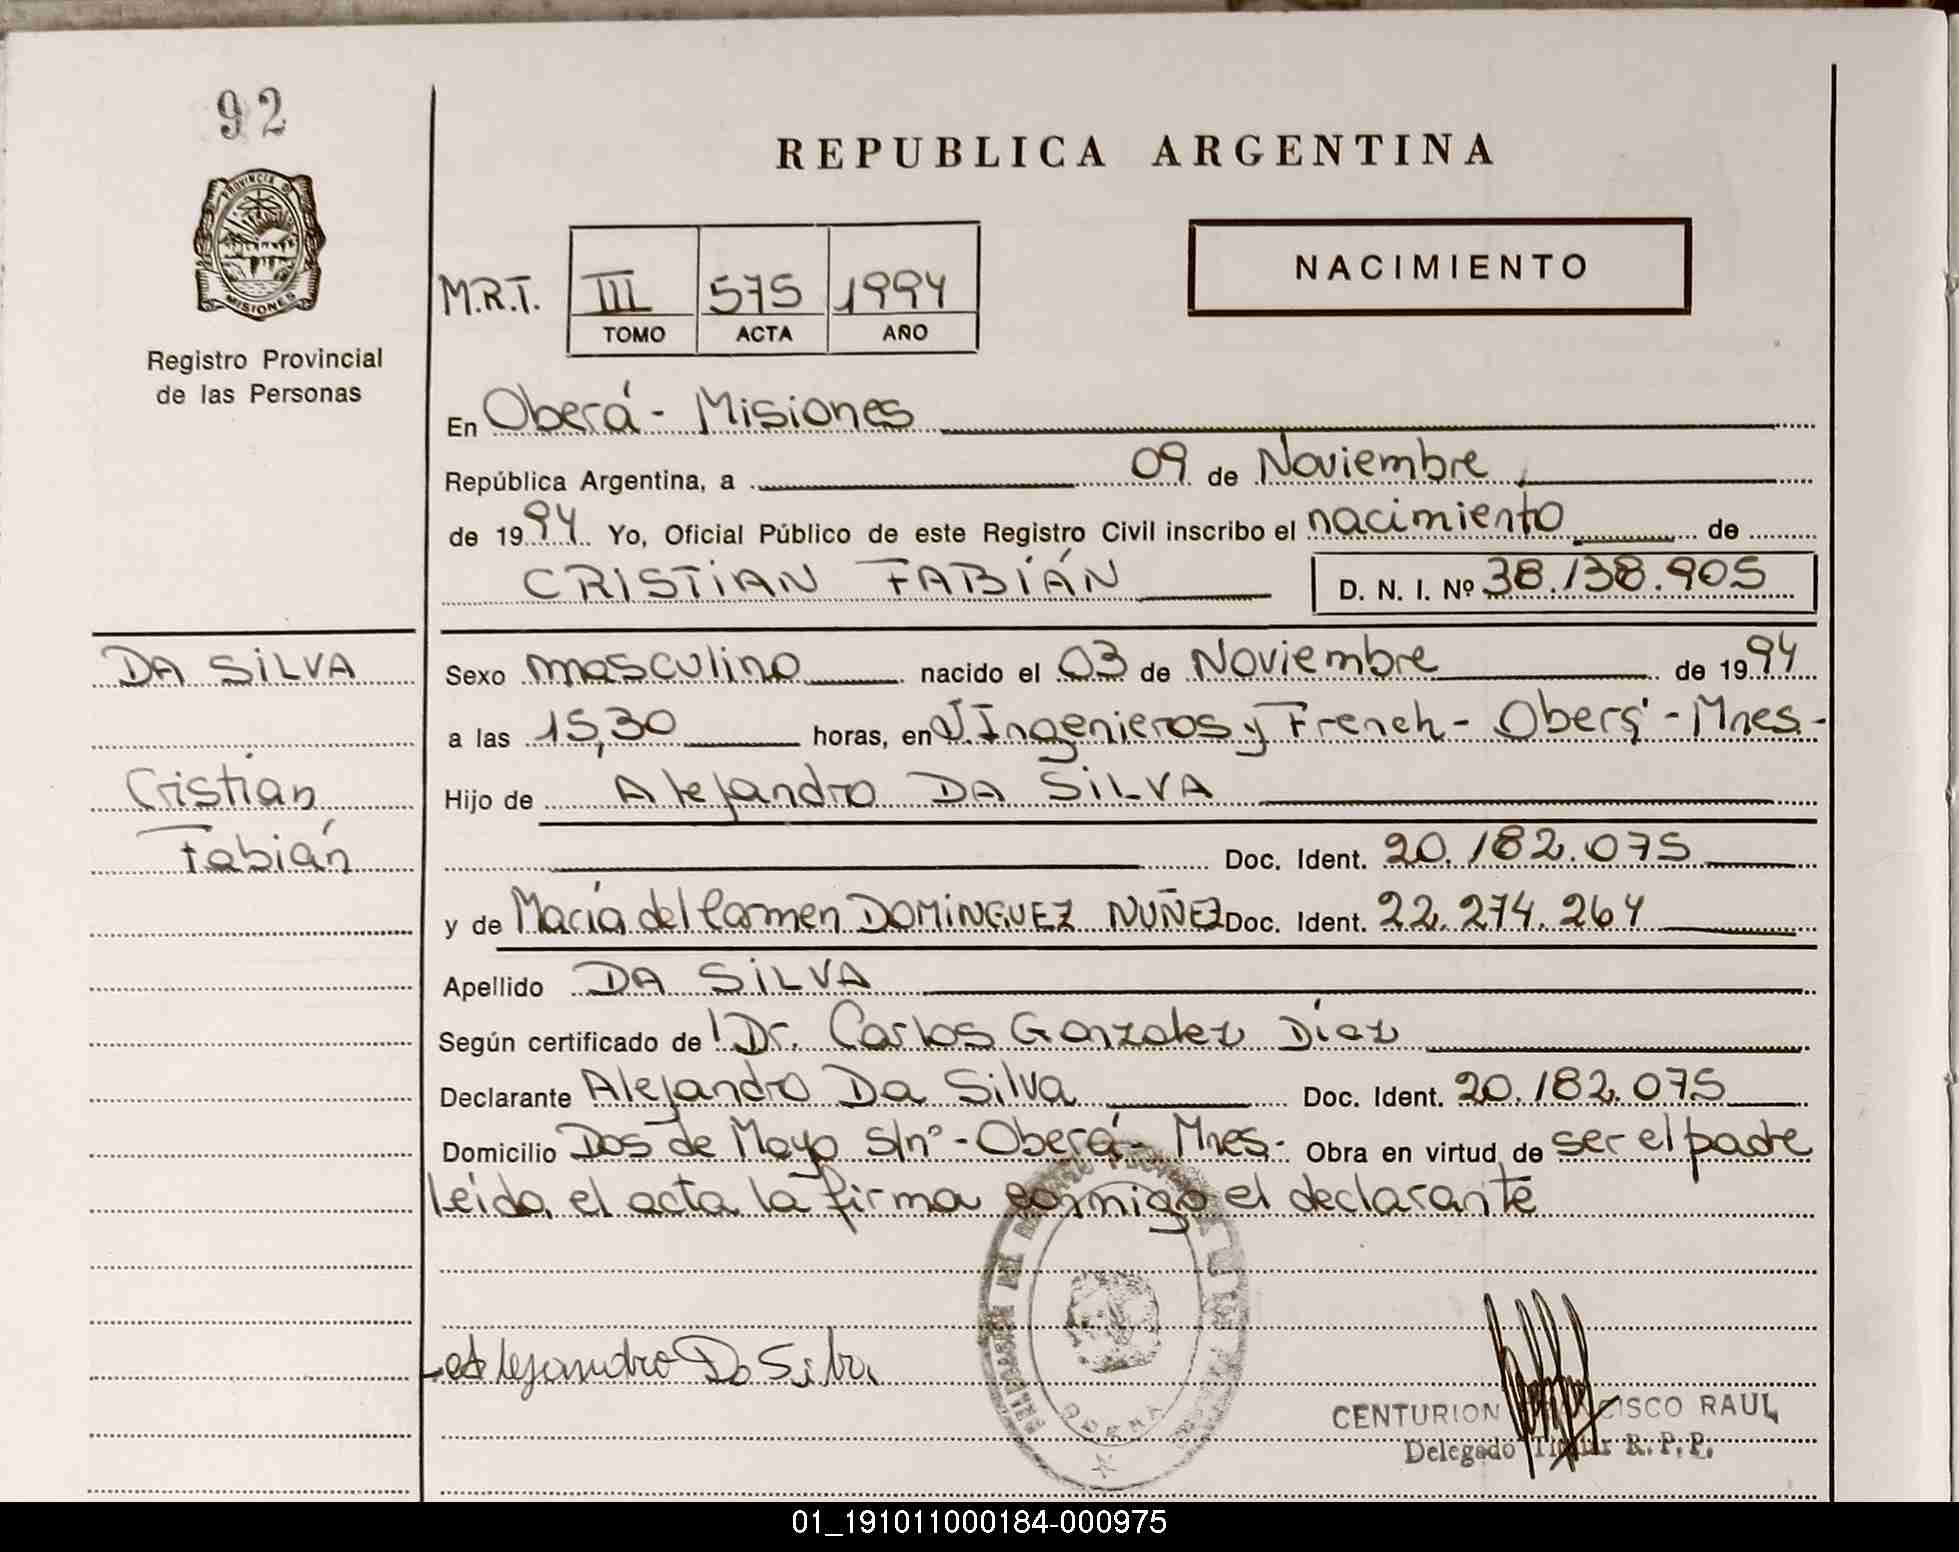 92
REPUBLICA ARGENTINA
PROVINCIA DE
MISIONES
Registro Provincial
de las Personas
M.R.T. III 575 1994
TOMO ACTA AÑO
NACIMIENTO
En Oberá - Misiones
República Argentina, a 09 de Noviembre
de 1994 Yo, Oficial Público de este Registro Civil inscribo el nacimiento de
CRISTIAN FABIÁN D. N. I. Nº 38.138.905
DA SILVA
Cristian
Fabián
Sexo masculino nacido el 03 de Noviembre de 1994
a las 15,30 horas, en J. Ingenieros y French - Oberá - Mnes -
Hijo de Alejandro DA SILVA
Doc. Ident. 20.182.075
y de María del Carmen DOMINGUEZ NUÑEZ Doc. Ident. 22.274.264
Apellido DA SILVA
Según certificado de Dr. Carlos Gonzalez Diaz
Declarante Alejandro Da Silva Doc. Ident. 20.182.075
Domicilio Dos de Mayo s/nº - Oberá - Mnes - Obra en virtud de ser el padre
leida el acta la firma conmigo el declarante
Alejandro Da Silva
OBERA
CENTURION RAUL
Delegado R.P.P.
01_191011000184-000975